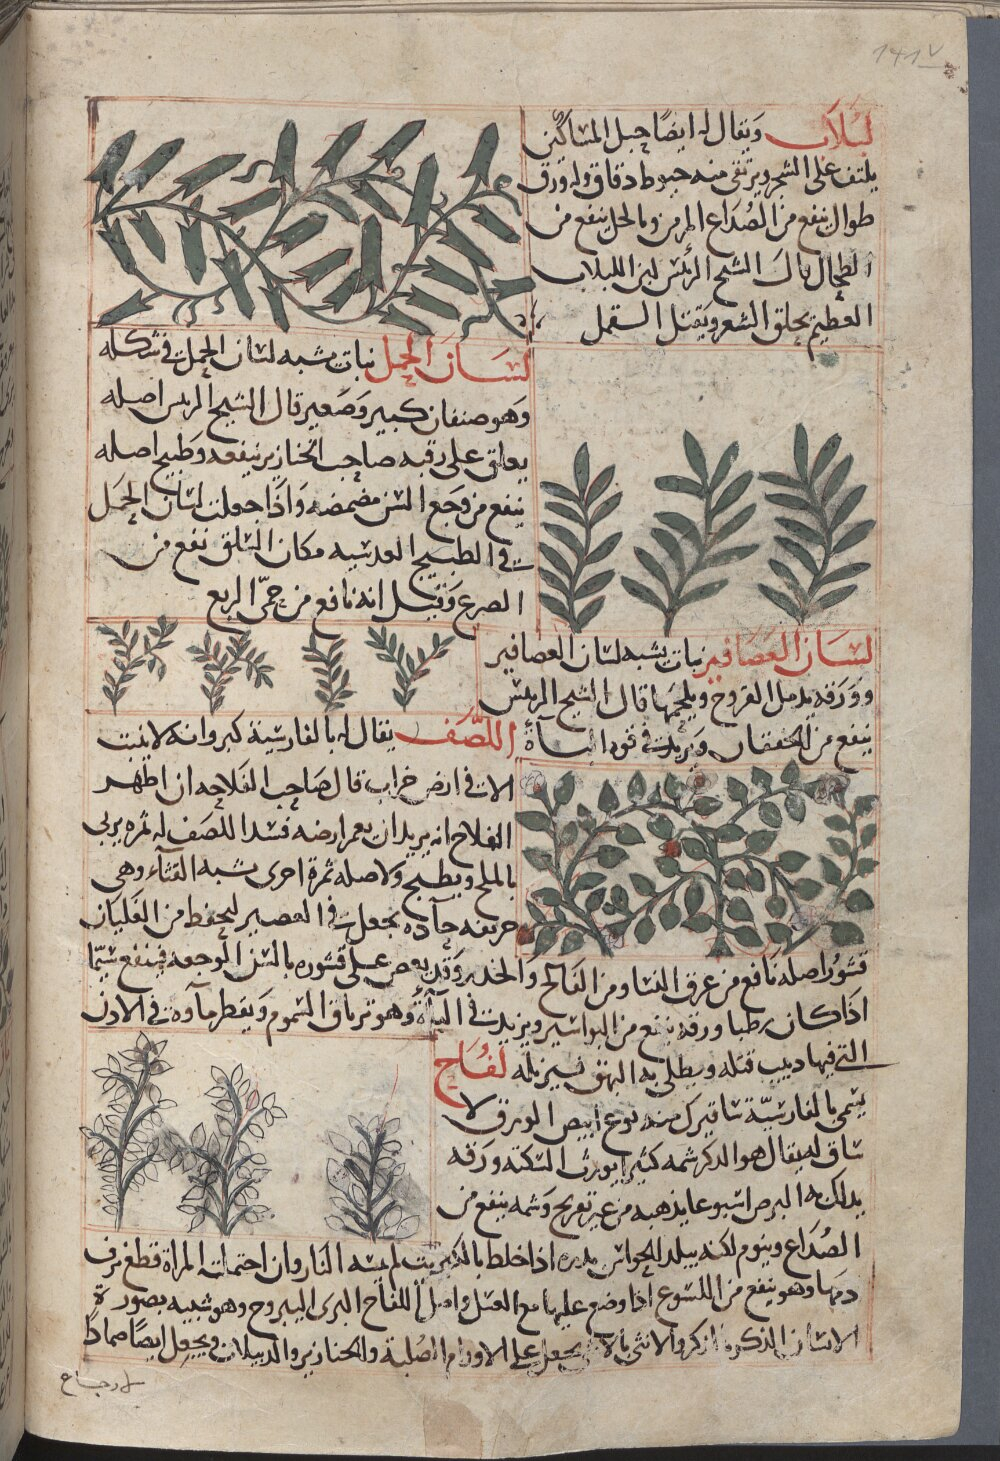 141v
لبلاب ويقال له ايضا حبل المساكين
يلتف على الشجر ويرتقى منه خيوط دقاق وله ورق
طوال ينفع من الصداع المزمن وبالخل ينفع من
الطحال قال الشيخ الرئيس لبن اللبلاب
العظيم يحلق الشعر ويقتل القمل
لسان الحمل نبات يشبه لسان الحمل في شكله
وهو صنفان كبير وصغير قال الشيخ الريس اصله
يعلق على رقبه صاحب الخنازير ينفعه وطبيخ اصله
ينفع من وجع السن مضمضه واذا جعلت لسان الحمل
في الطبيخ العدسيه مكان السلق نفع من
الصرع وقيل انه نافع من حمى الربع
لسان العصافير نبات يشبه لسان العصافير
وورقه يدمل القروح ويلحمها قال الشيخ الريس
ينفع من الخفقان ويزيد في قوة الباءة
اللصف يقال له بالفارسية كبر وانه لا ينبت
الا في ارض خراب قال صاحب الفلاحه ان اظهر
الفلاح انه يريد ان يعمر ارضه فسد اللصف له ثمره يربى
بالملح ويطبخ ولاصله ثمرة اخرى شبه القثاء وهي
حريفه حاده يجعل في العصير ليحفظ من الغليان
قشور اصله نافع من عرق النسا ومن الفالج والخدر وقد يعض على قشوره بالسن الوجعه فينفع سيما
اذا كان رطبا ورقه ينفع من البواسير ويزيد في الباءة وهو ترياق السموم ويقطر ماوه في الاذن
التي فيها دبيب قتله ويطلى به البهق فيزيله لفاح
يسمى بالفارسية شابيزك منه نوع ابيض الورق لا
ساق له يقال هو الذكر شمه كثيرا يورث السكته ورقه
يدلك به البرص اسبوعا يذهبه من غير تقريح وشمه ينفع من
الصداع وينوم لكنه يبلد الحواس بدره اذا خلط بالكبريت لم يمسه النار وان احتملته المراة قطع نزف
دمها وهو ينفع من اللسوع اذا وضع عليها مع العسل واصل اللفاح البرى اليبروح وهو شبيه بصورة
الانسان الذكر بالذكر والانثى بالانثى يجعل على الاورام الصلبة والخنازير والدبيلات ويجعل ايضا ضمادا